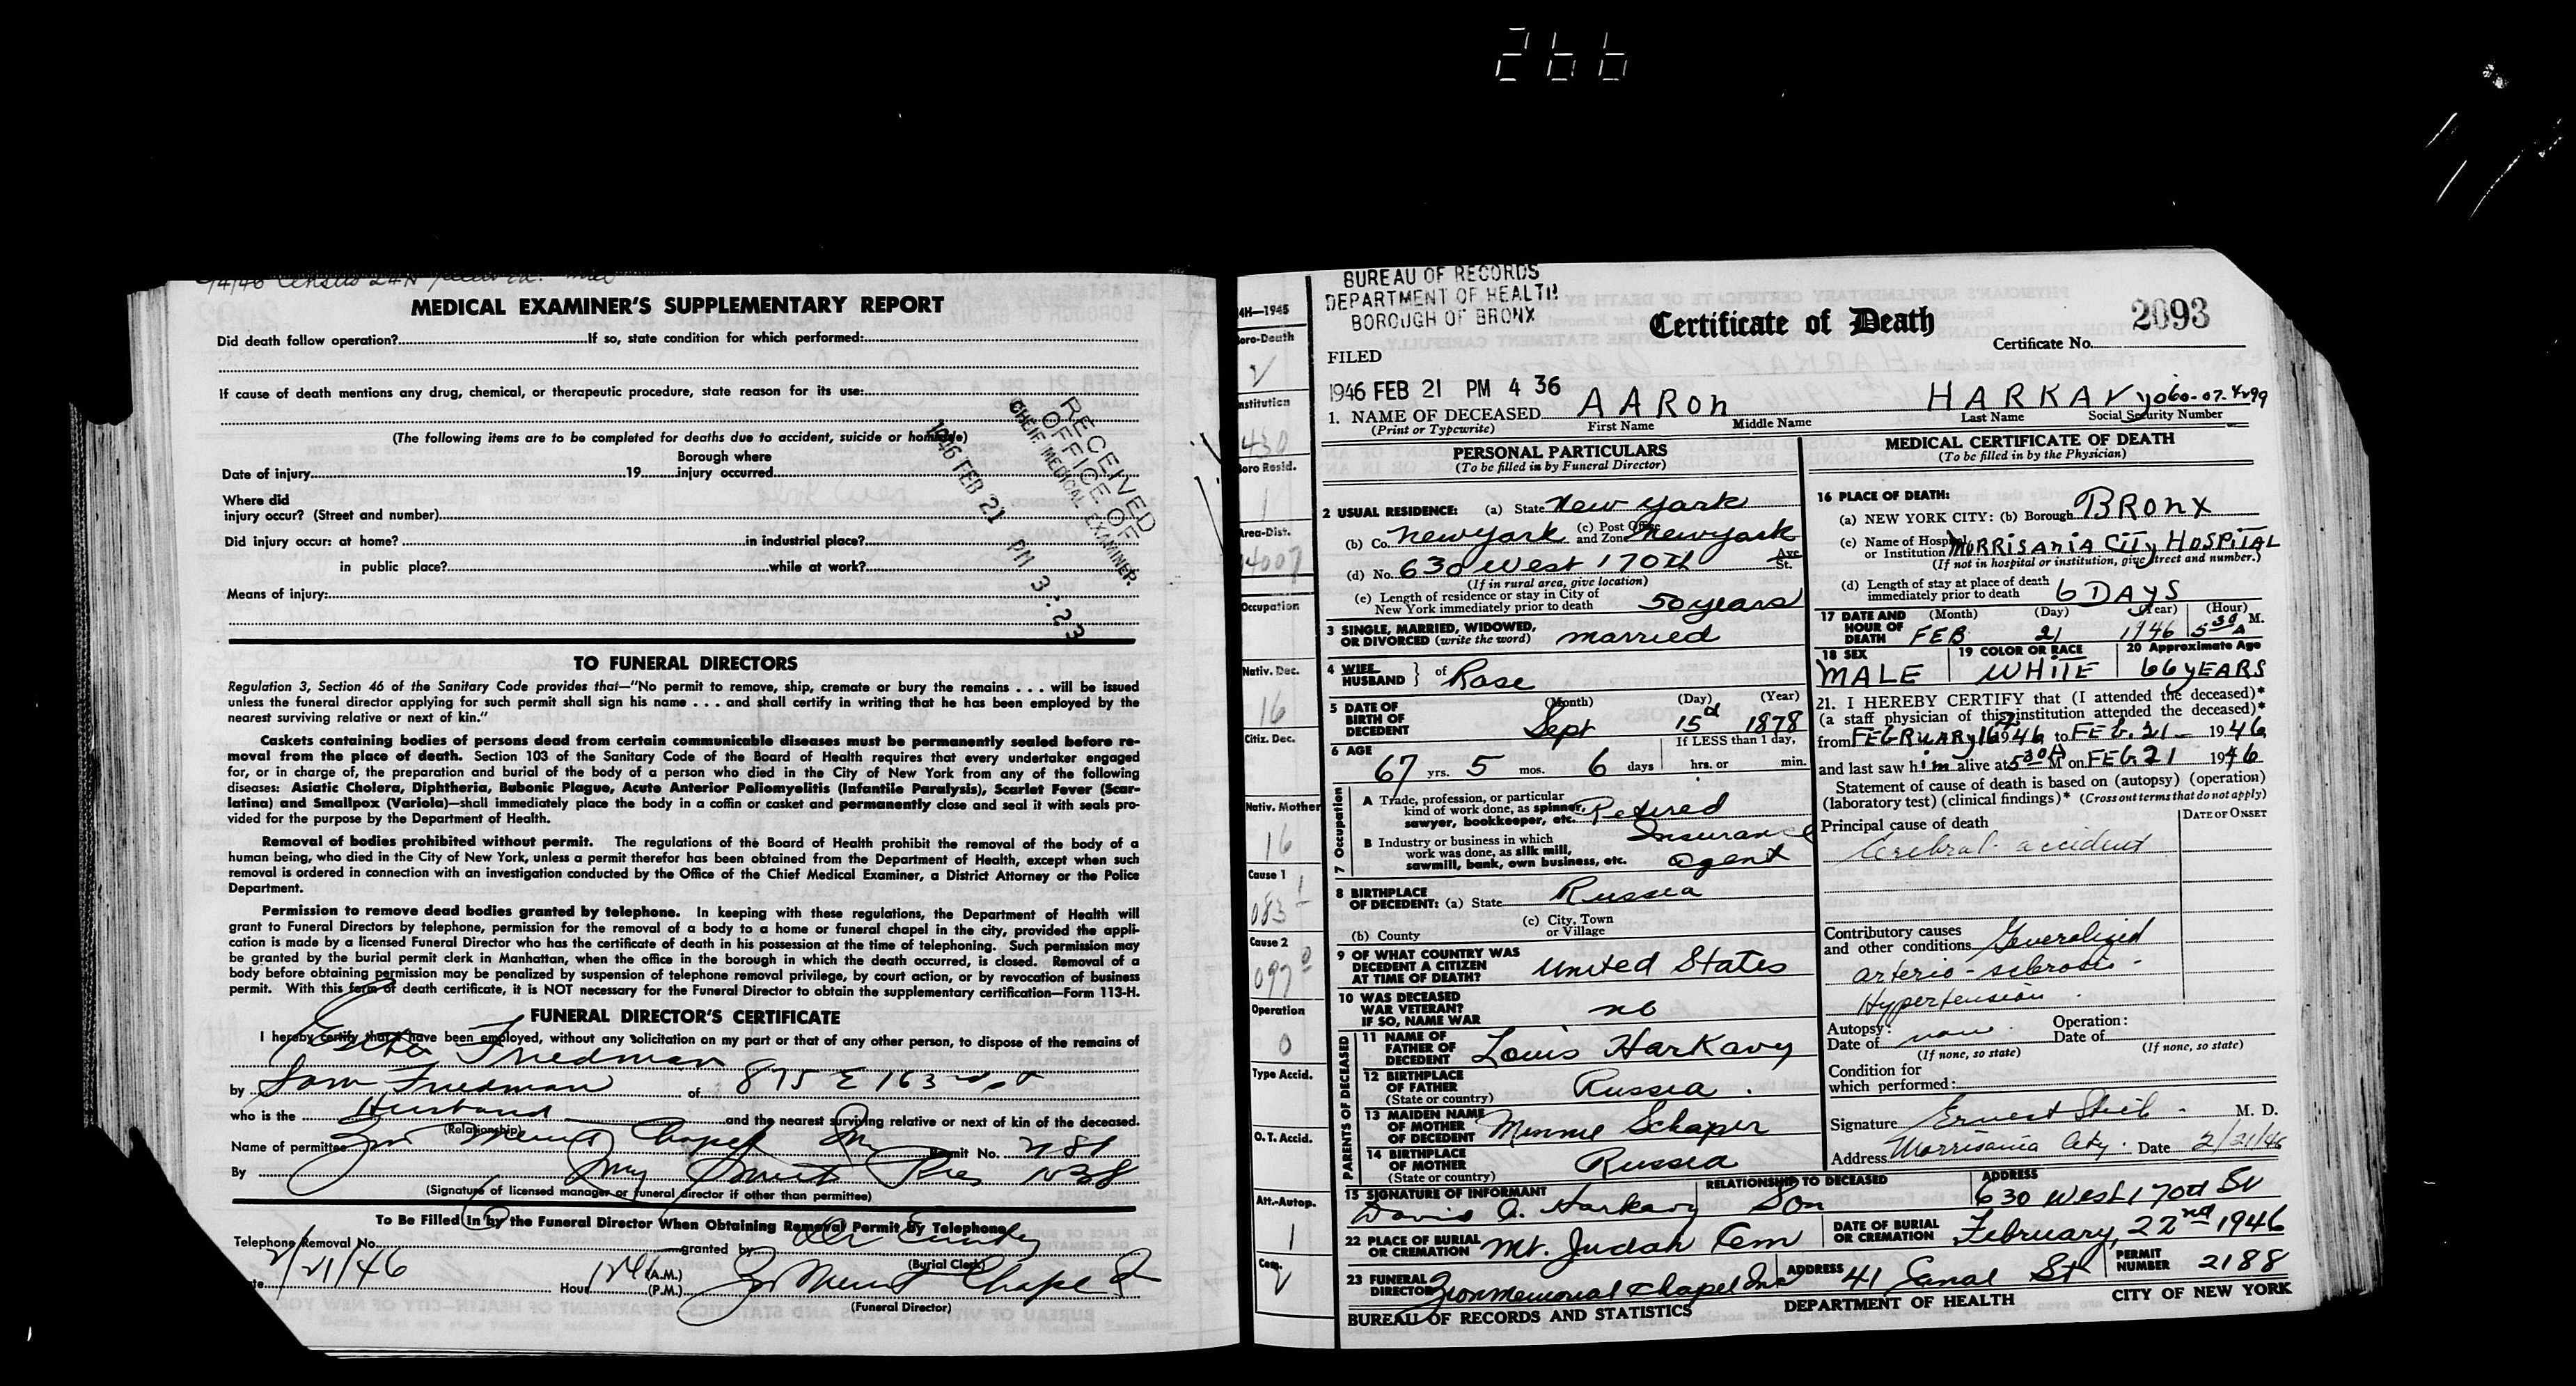 266
MEDICAL EXAMINER'S SUPPLEMENTARY REPORT
Did death follow operation? If so, state condition for which performed:
If cause of death mentions any drug, chemical, or therapeutic procedure, state reason for its use:
(The following items are to be completed for deaths due to accident, suicide or homicide)
Date of injury 19 Borough where injury occurred
Where did
injury occur? (Street and number)
Did injury occur: at home? in industrial place?
in public place? while at work?
Means of injury:
RECEIVED
OFFICE OF
CHIEF MEDICAL EXAMINER.
1946 FEB 21 PM 3:23
TO FUNERAL DIRECTORS
Regulation 3, Section 46 of the Sanitary Code provides that—"No permit to remove, ship, cremate or bury the remains . . . will be issued
unless the funeral director applying for such permit shall sign his name . . . and shall certify in writing that he has been employed by the
nearest surviving relative or next of kin."
Caskets containing bodies of persons dead from certain communicable diseases must be permanently sealed before re-
moval from the place of death. Section 103 of the Sanitary Code of the Board of Health requires that every undertaker engaged
for, or in charge of, the preparation and burial of the body of a person who died in the City of New York from any of the following
diseases: Asiatic Cholera, Diphtheria, Bubonic Plague, Acute Anterior Poliomyelitis (Infantile Paralysis), Scarlet Fever (Scar-
latina) and Smallpox (Variola)—shall immediately place the body in a coffin or casket and permanently close and seal it with seals pro-
vided for the purpose by the Department of Health.
Removal of bodies prohibited without permit. The regulations of the Board of Health prohibit the removal of the body of a
human being, who died in the City of New York, unless a permit therefor has been obtained from the Department of Health, except when such
removal is ordered in connection with an investigation conducted by the Office of the Chief Medical Examiner, a District Attorney or the Police
Department.
Permission to remove dead bodies granted by telephone. In keeping with these regulations, the Department of Health will
grant to Funeral Directors by telephone, permission for the removal of a body to a home or funeral chapel in the city, provided the appli-
cation is made by a licensed Funeral Director who has the certificate of death in his possession at the time of telephoning. Such permission may
be granted by the burial permit clerk in Manhattan, when the office in the borough in which the death occurred, is closed. Removal of a
body before obtaining permission may be penalized by suspension of telephone removal privilege, by court action, or by revocation of business
permit. With this form of death certificate, it is NOT necessary for the Funeral Director to obtain the supplementary certification—Form 113-H.
FUNERAL DIRECTOR'S CERTIFICATE
I hereby certify that I have been employed, without any solicitation on my part or that of any other person, to dispose of the remains of
Friedman
by Sam Friedman of 875 E 163
who is the Husband and the nearest surviving relative or next of kin of the deceased.
(Relationship)
Name of permittee Chapel Permit No.
By Pres 1038
(Signature of licensed manager or funeral director if other than permittee)
To Be Filled In by the Funeral Director When Obtaining Removal Permit By Telephone
Telephone Removal No. granted by
(Burial Clerk)
2/21/46 Hour (A.M.) (P.M.) Chapel
(Funeral Director)
4H—1945
Boro-Death
Institution
430
Boro Resid.
1
Area-Dist.
14007
Occupation
Nativ. Dec.
16
Citiz. Dec.
Nativ. Mother
16
Cause 1
083
Cause 2
097
Operation
0
Type Accid.
O. T. Accid.
Att.-Autop.
1
Com.
BUREAU OF RECORDS
DEPARTMENT OF HEALTH
BOROUGH OF BRONX
Certificate of Death
2093
Certificate No.
FILED
1946 FEB 21 PM 4 36
1. NAME OF DECEASED AARON HARKAVY 060-07-4299
(Print or Typewrite) First Name Middle Name Last Name Social Security Number
PERSONAL PARTICULARS
(To be filled in by Funeral Director)
2 USUAL RESIDENCE: (a) State New York
(b) Co. New York (c) Post Office and Zone New York
(d) No. 630 West 170th Ave St.
(If in rural area, give location)
(e) Length of residence or stay in City of
New York immediately prior to death 50 years
3 SINGLE, MARRIED, WIDOWED,
OR DIVORCED (write the word) married
4 WIFE HUSBAND } of Rose
5 DATE OF BIRTH OF DECEDENT (Month) Sept (Day) 15 (Year) 1878
6 AGE 67 yrs. 5 mos. 6 days If LESS than 1 day, hrs. or min.
7 Occupation
A Trade, profession, or particular
kind of work done, as spinner,
sawyer, bookkeeper, etc. Retired
B Industry or business in which
work was done, as silk mill,
sawmill, bank, own business, etc. Insurance Agent
8 BIRTHPLACE
OF DECEDENT: (a) State Russia
(b) County (c) City, Town or Village
9 OF WHAT COUNTRY WAS
DECEDENT A CITIZEN
AT TIME OF DEATH? United States
10 WAS DECEASED
WAR VETERAN?
IF SO, NAME WAR no
PARENTS OF DECEASED
11 NAME OF
FATHER OF
DECEDENT Louis Harkavy
12 BIRTHPLACE
OF FATHER
(State or country) Russia
13 MAIDEN NAME
OF MOTHER
OF DECEDENT Minnie Schaper
14 BIRTHPLACE
OF MOTHER
(State or country) Russia
MEDICAL CERTIFICATE OF DEATH
(To be filled in by the Physician)
16 PLACE OF DEATH:
(a) NEW YORK CITY: (b) Borough BRONX
(c) Name of Hospital
or Institution MORRISANIA CITY HOSPITAL
(If not in hospital or institution, give street and number.)
(d) Length of stay at place of death
immediately prior to death 6 DAYS
17 DATE AND HOUR OF DEATH (Month) FEB (Day) 21 (Year) 1946 (Hour) 5 30 A M.
18 SEX MALE 19 COLOR OR RACE WHITE 20 Approximate Age 66 YEARS
21. I HEREBY CERTIFY that (I attended the deceased)*
(a staff physician of this institution attended the deceased)*
from FEBRUARY 16 1946 to FEB. 21 1946
and last saw him alive at 5 30 A M on FEB 21 1946
Statement of cause of death is based on (autopsy) (operation)
(laboratory test) (clinical findings)* (Cross out terms that do not apply)
Principal cause of death DATE OF ONSET
Cerebral accident
Contributory causes
and other conditions Generalized
arterio-sclerosis
Hypertension
Autopsy: Date of Operation: Date of
(If none, so state) (If none, so state)
Condition for
which performed:
Signature Ernest M. D.
Address Morrisania City Date 2/21/46
15 SIGNATURE OF INFORMANT RELATIONSHIP TO DECEASED ADDRESS
Harkavy Son 630 West 170th St
22 PLACE OF BURIAL
OR CREMATION Mt. Judah Cem DATE OF BURIAL OR CREMATION February, 22nd 1946
23 FUNERAL
DIRECTOR Zion Memorial Chapel Inc ADDRESS 41 Canal St PERMIT NUMBER 2188
BUREAU OF RECORDS AND STATISTICS DEPARTMENT OF HEALTH CITY OF NEW YORK